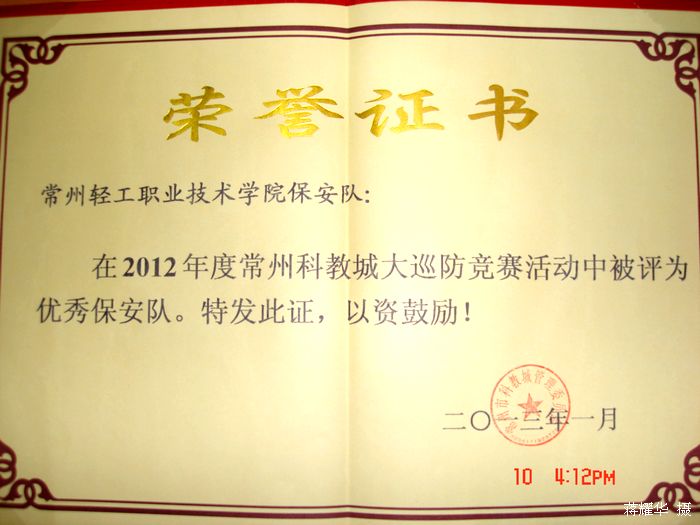 荣誉证书
常州轻工职业技术学院保安队：
在2012年度常州科教城大巡防竞赛活动中被评为
优秀保安队。特发此证，以资鼓励！
二〇一三年一月
10 4:12PM
蒋耀华 摄